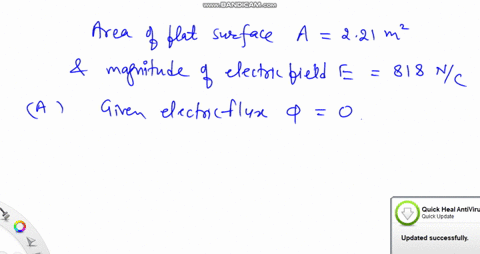 WWW.BANDICAM.COM
Area of flat surface A = 2.21 m²
& magnitude of electric field E = 818 N/C
(A) Given electric-flux φ = 0.
Quick Heal AntiViru
Quick Update
Updated successfully.